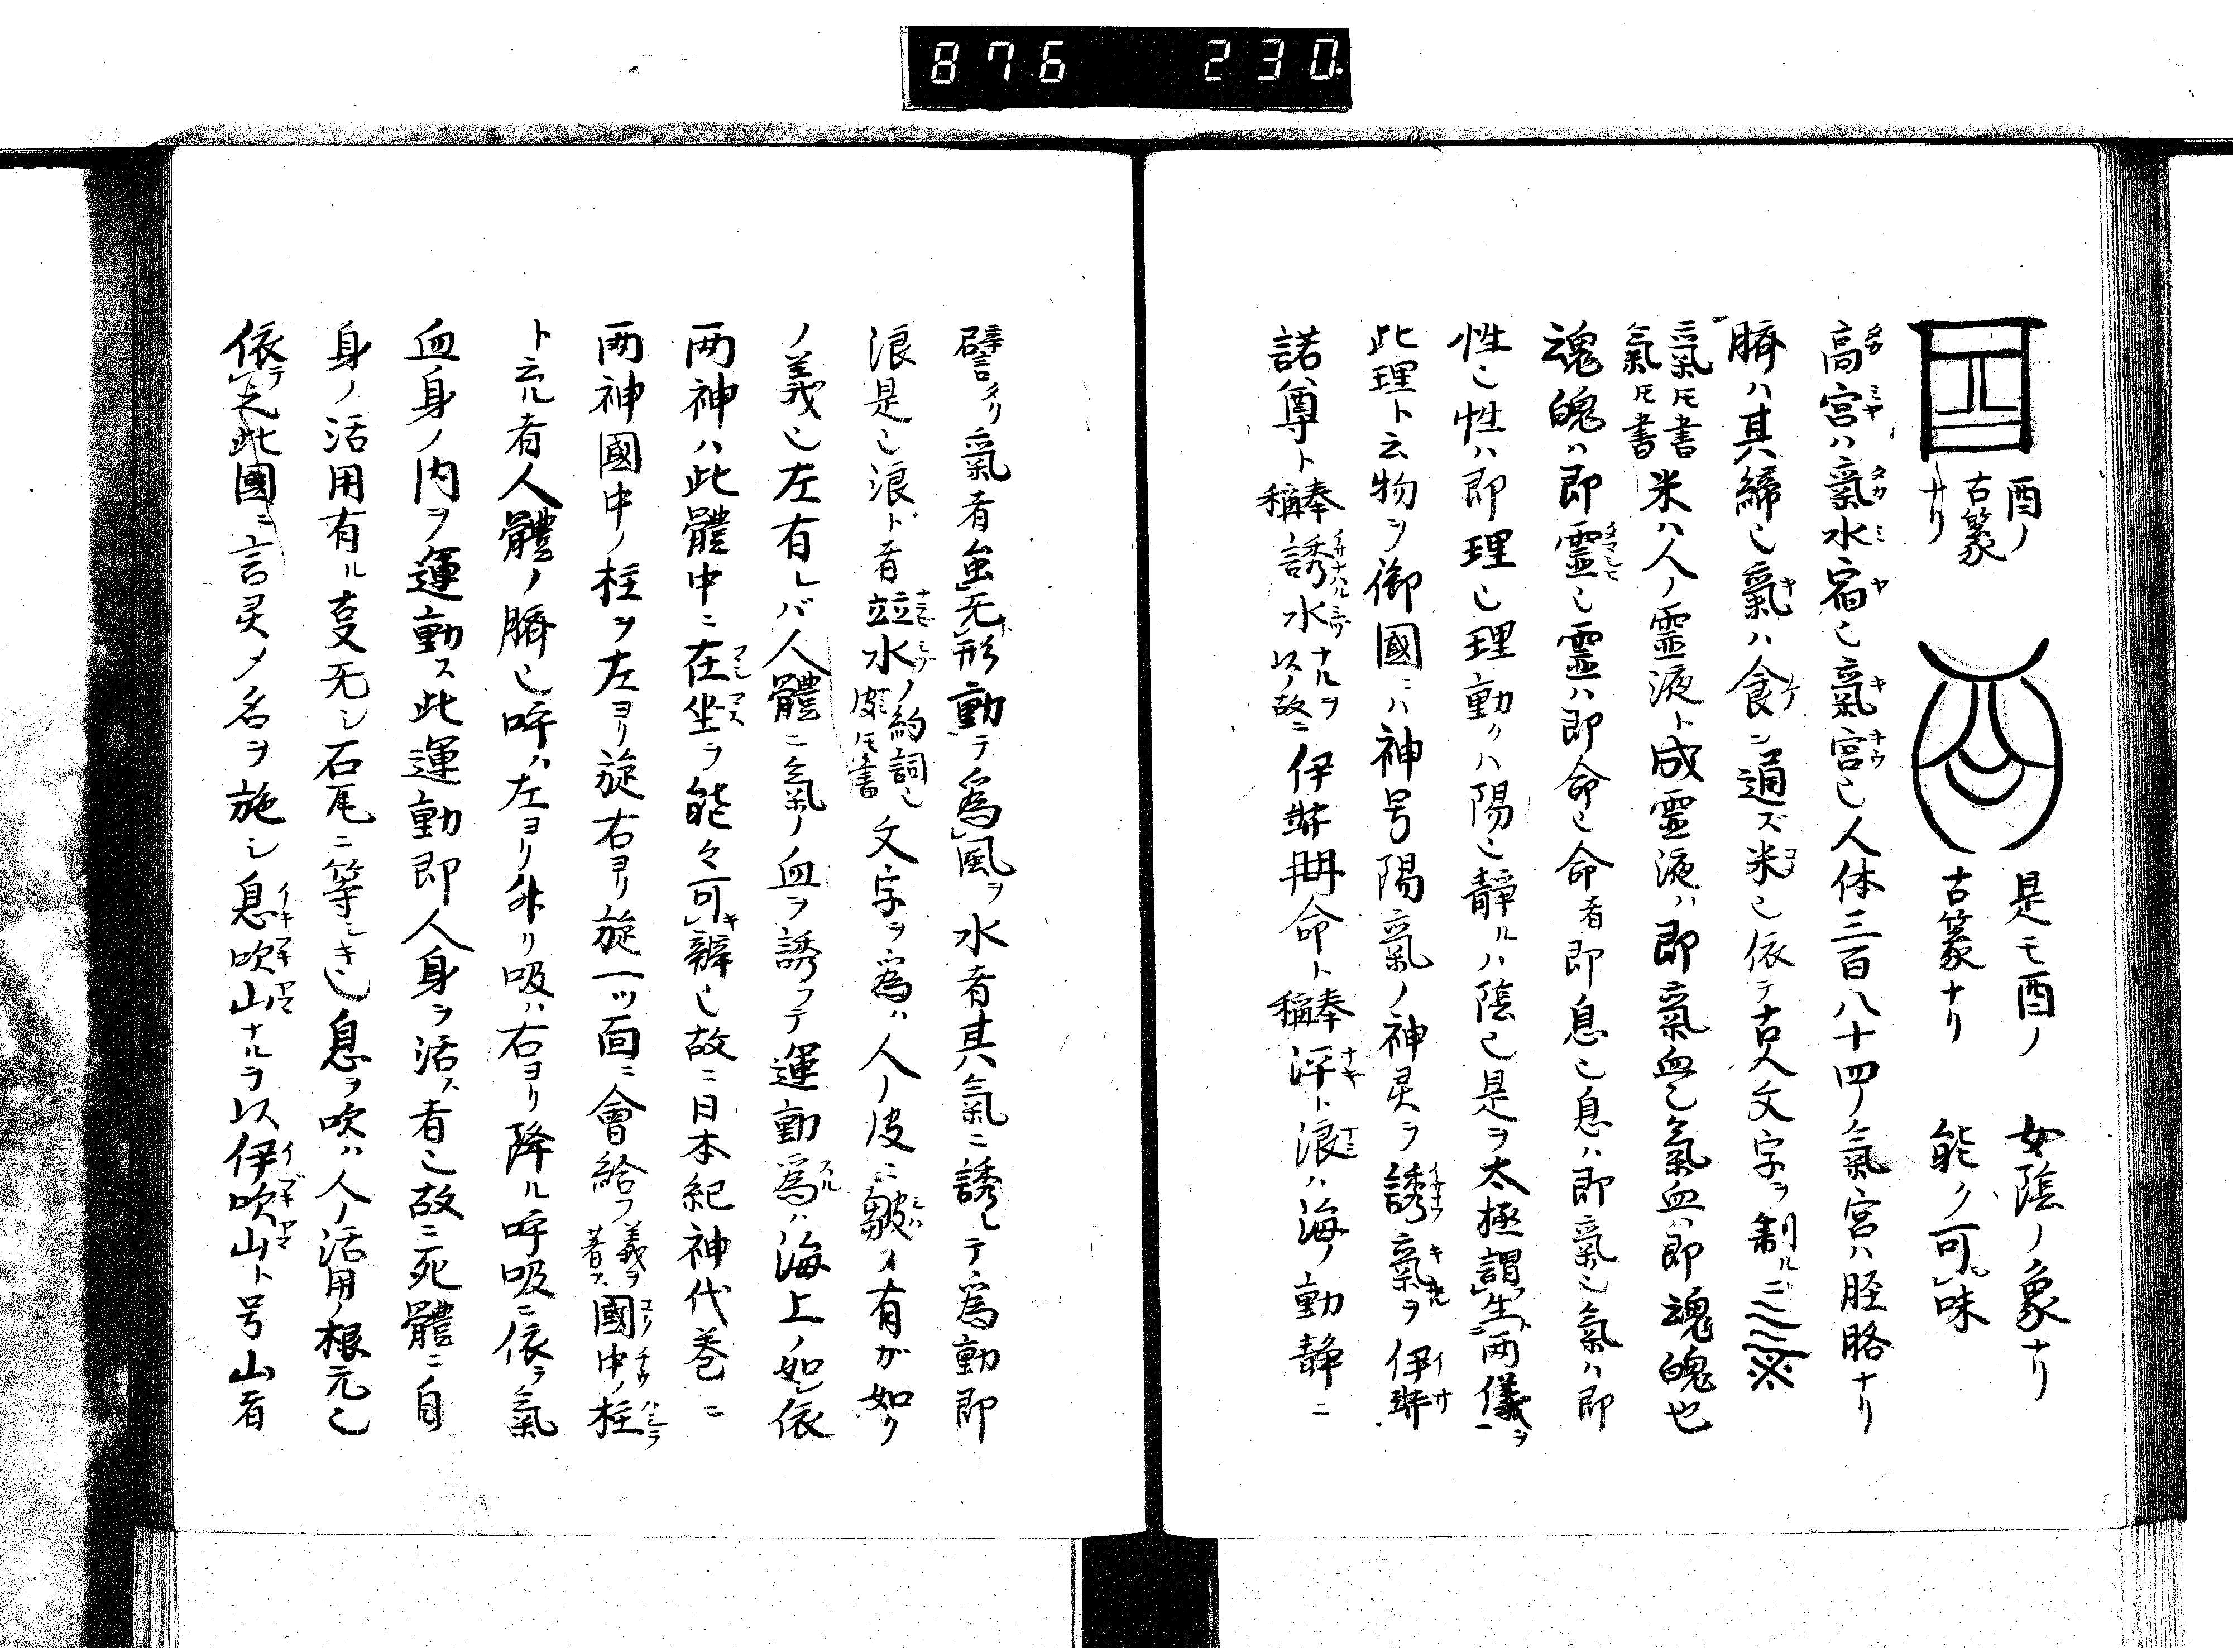 876 230
酉ノ
古篆
ナリ
是モ酉ノ
古篆ナリ
女陰ノ象ナリ
能ク可味
高宮ハ氣水宿也氣宮也人体三百八十四ノ氣宮ハ胵胳ナリ
臍ハ其締也氣ハ食ニ通ズ米也依テ古人文字ヲ制ル
氣氏書
氣氏書
米ハ人ノ霊液ト成霊液ハ即氣血也氣血ハ即魂魄也
魂魄ハ即霊也霊ハ即命也命者即息也息ハ即氣也氣ハ即
性也性ハ即理也理動クハ陽也静ルハ陰也是ヲ太極謂生両儀ヲ
此理ト云物ヲ御國ニハ神号陽氣ノ神灵ヲ誘氣ヲ伊弉
諾尊ト奉稱誘水ナルヲ以ノ故ニ伊弉冊命ト奉稱泙ト浪ハ海ノ動静ニ
譬タリ氣者虫无形動テ為風ヲ水者其氣ニ誘レテ為動即
浪是也浪ト者竝水ノ約詞也
文字ヲ為ハ人ノ皮ニ皺ノ有ガ如ク
ノ義也左有レバ人體ニ氣ノ血ヲ誘フテ運動為ハ海上ノ如シ依
両神ハ此體中ニ在坐ヲ能々可辨也故ニ日本紀神代巻ニ
両神國中ノ柱ヲ左ヨリ旋右ヨリ旋一ツ面ニ會給フ義ヲ著ス國中ノ柱
ト云ル者人體ノ臍也呼ハ左ヨリ外リ吸ハ右ヨリ降ル呼吸ニ依ラ氣
血身ノ内ヲ運動ス此運動即人身ヲ活ス者也故ニ死體ニ自
身ノ活用有ル叓无シ石瓦ニ等シキ也息ヲ吹ハ人ノ活用ノ根元也
依テ之此國ニ言灵ノ名ヲ施シ息吹山ナルヲ以伊吹山ト号山者